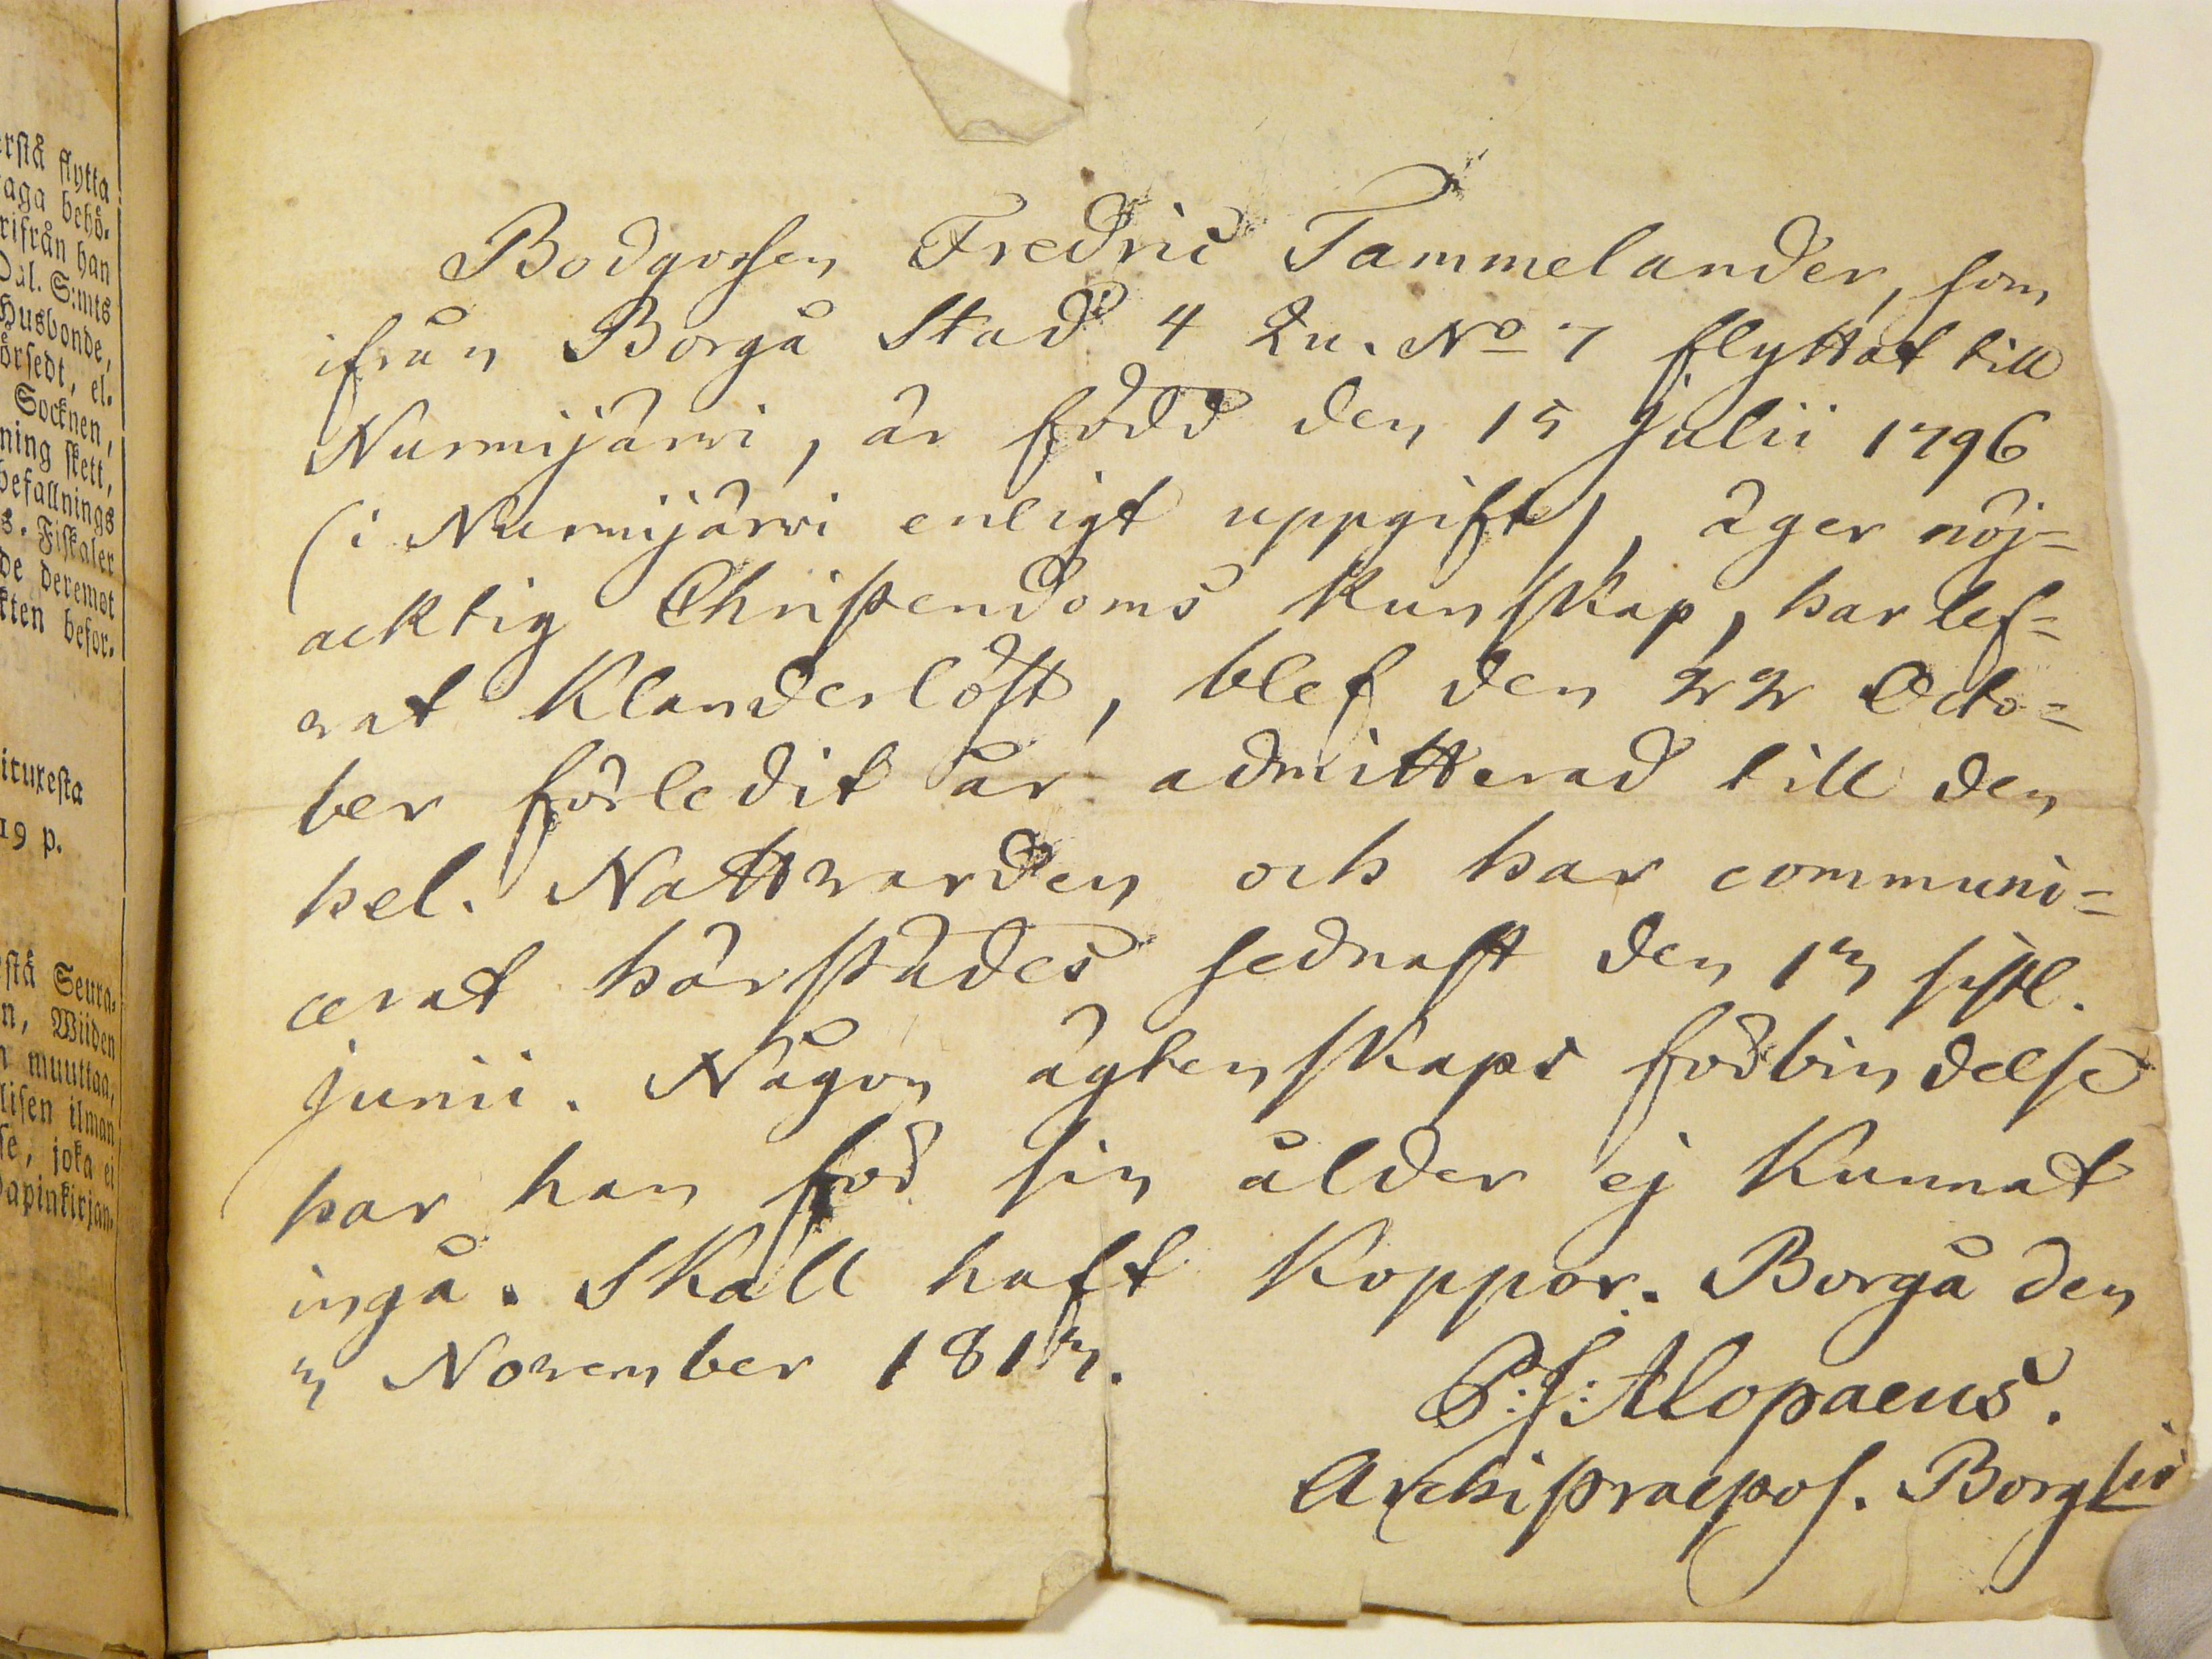 erstå flytta
aga behö-
rifrån han
Dal. S:mts
Husbonde,
örsedt, el-
Socknen,
ning skett,
befallnings
s. Fiskaler
de deremot
kten befor-
19 p.
stå Seura-
n, Wiiden
muuttaa,
lisen ilman
se, joka ei
apinkirjan-
Bodgossen Fredric Tammelander, som
ifrån Borgå Stad 4 Qu. No 7 flyttat till
Nurmijärvi, är född den 15 Julii 1796
(i Nurmijärvi enligt uppgift), äger nöj=
acktig Christendoms kunskap, har lef=
vat klanderlöst, blef den 22 Octo=
ber förledit år admitterad till den
hel. Nattvarden och har communi=
cerat härstädes sednast den 13 sistl.
junii. Någon ägtenskaps förbindelse
har han för sin ålder ej kunnat
ingå. Skall haft koppor. Borgå den
3 November 1813.
P:J: Alopaeus.
Archipraepos. Borg